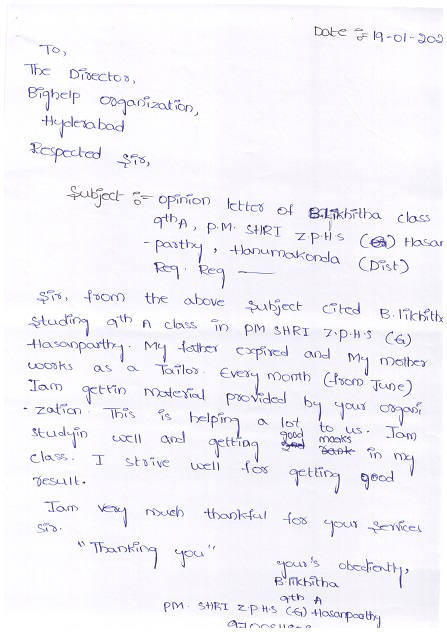 Date : 19-01-202
To,
The Director,
Bighelp organization,
Hyderabad
Respected Sir,
Subject :- opinion letter of B.Likhitha class
9th A, P.M. SHRI Z.P.H.S (G) Hasan
-parthy, Hanumakonda (Dist)
Req. Reg —
Sir, from the above subject cited B.likhitha
studing 9th A class in PM SHRI Z.P.H.S (G)
Hasanparthy. My father expired and My mother
works as a Tailor. Every month (from June)
Iam gettin material provided by your organi
-zation. This is helping a lot to us. Iam
studyin well and getting good marks in my
class. I strive well for getting good
result.
Iam very much thankful for your services
sir.
"Thanking you"
your's obediently,
B.likhitha
9th A
PM. SHRI Z.P.H.S (G) Hasanparthy